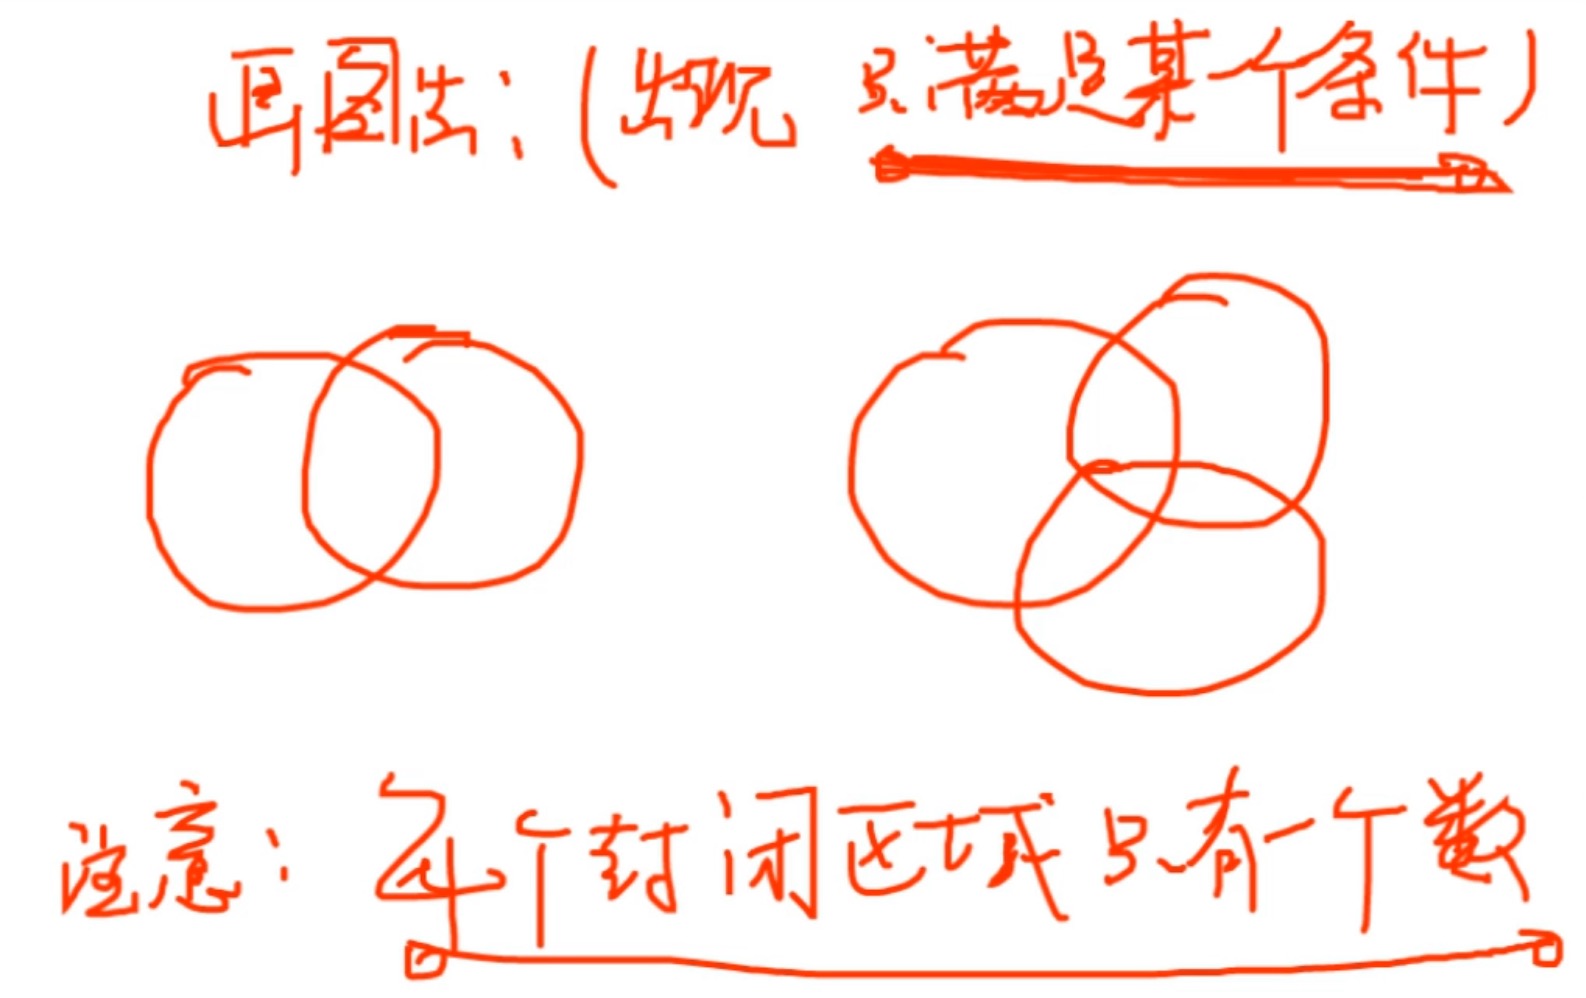 画图法：（出现 只满足某一个条件）
注意：每个封闭区域只有一个数